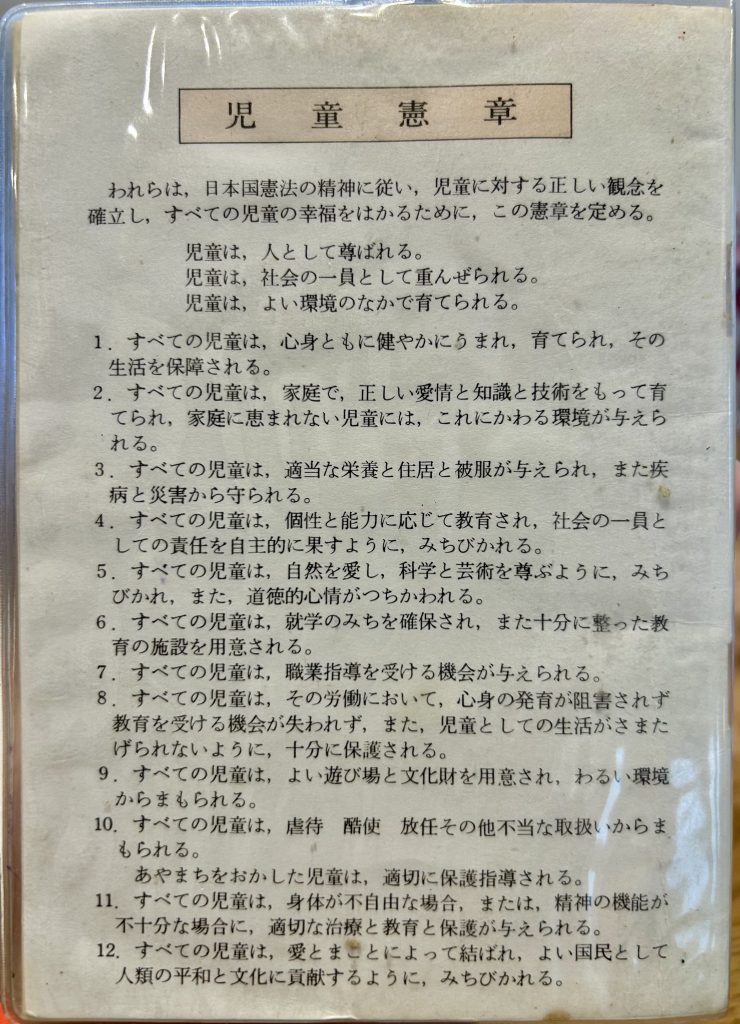 児童憲章
われらは，日本国憲法の精神に従い，児童に対する正しい観念を
確立し，すべての児童の幸福をはかるために，この憲章を定める。
児童は，人として尊ばれる。
児童は，社会の一員として重んぜられる。
児童は，よい環境のなかで育てられる。
1．すべての児童は，心身ともに健やかにうまれ，育てられ，その
生活を保障される。
2．すべての児童は，家庭で，正しい愛情と知識と技術をもって育
てられ，家庭に恵まれない児童には，これにかわる環境が与えら
れる。
3．すべての児童は，適当な栄養と住居と被服が与えられ，また疾
病と災害から守られる。
4．すべての児童は，個性と能力に応じて教育され，社会の一員と
しての責任を自主的に果すように，みちびかれる。
5．すべての児童は，自然を愛し，科学と芸術を尊ぶように，みち
びかれ，また，道徳的心情がつちかわれる。
6．すべての児童は，就学のみちを確保され，また十分に整った教
育の施設を用意される。
7．すべての児童は，職業指導を受ける機会が与えられる。
8．すべての児童は，その労働において，心身の発育が阻害されず
教育を受ける機会が失われず，また，児童としての生活がさまた
げられないように，十分に保護される。
9．すべての児童は，よい遊び場と文化財を用意され，わるい環境
からまもられる。
10．すべての児童は，虐待　酷使　放任その他不当な取扱いからま
もられる。
あやまちをおかした児童は，適切に保護指導される。
11．すべての児童は，身体が不自由な場合，または，精神の機能が
不十分な場合に，適切な治療と教育と保護が与えられる。
12．すべての児童は，愛とまことによって結ばれ，よい国民として
人類の平和と文化に貢献するように，みちびかれる。